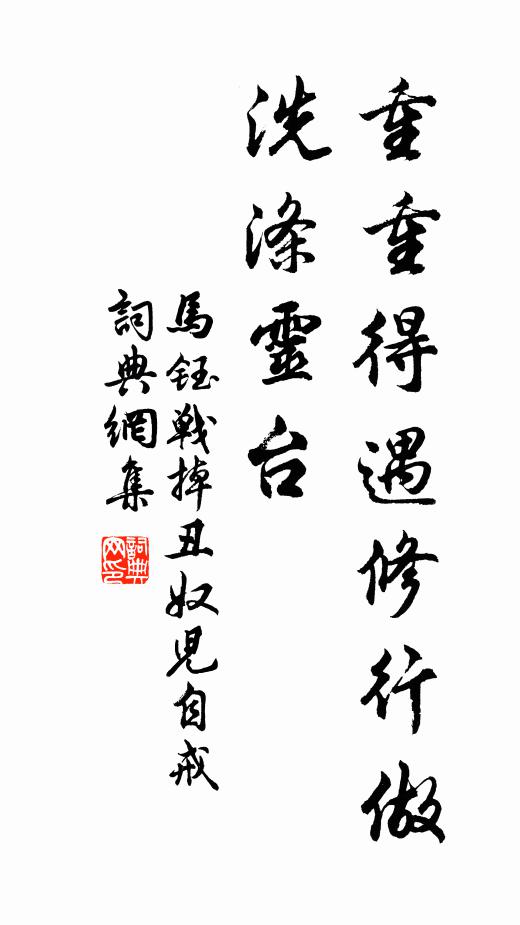 重重得遇修行做
洗滌靈台
馬鈺戰掉丑奴兒自戒
詞典網集
詞典网印